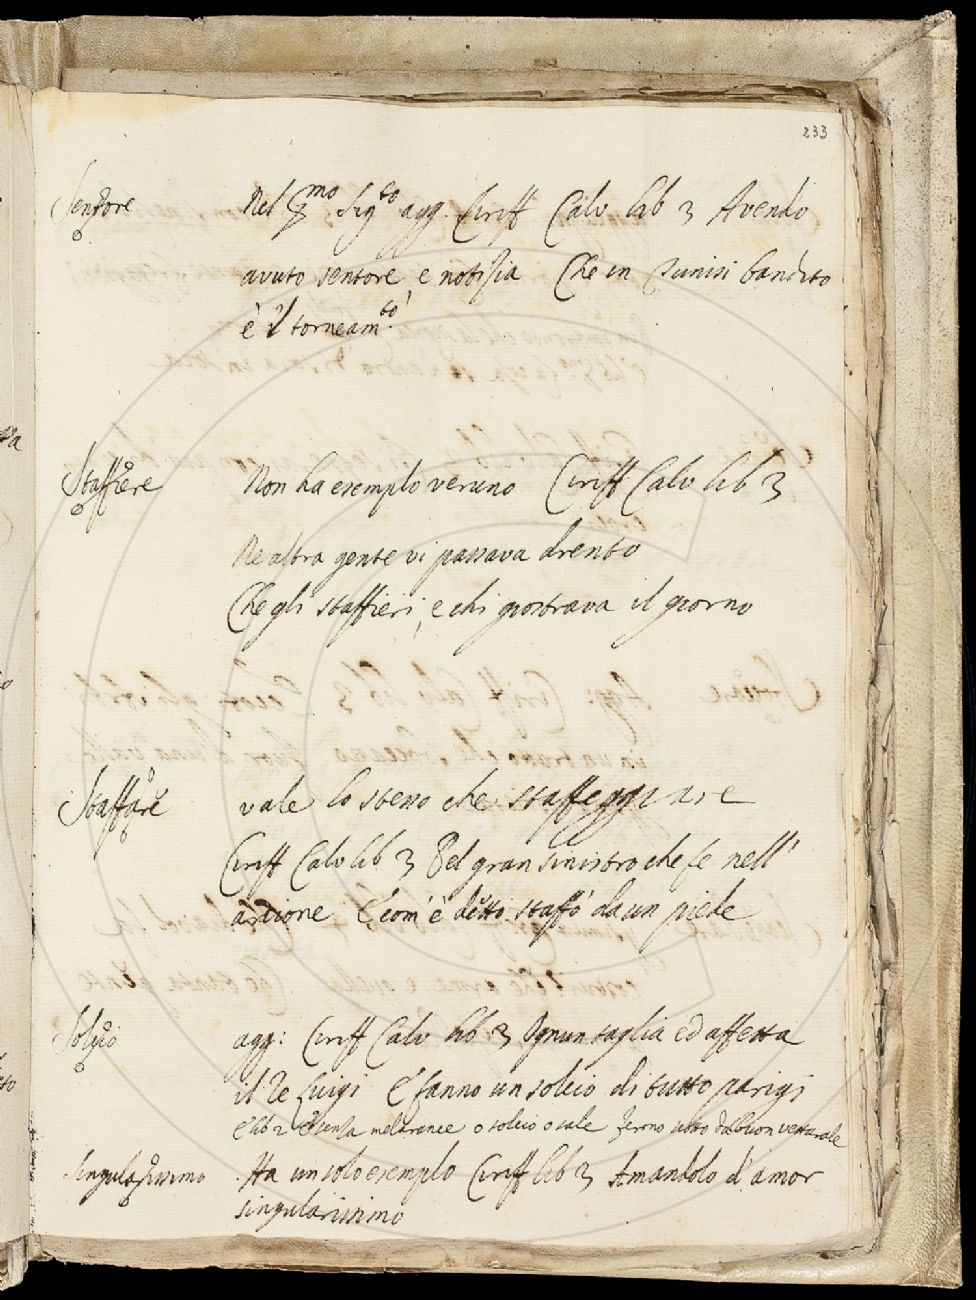 233
Sentore Nel p.mo sig.to agg. Ciriff Calv lib 3 Avendo
avuto sentore e notizia Che in Tunisi bandito
è il torneam.to
Staffiere Non ha esempio veruno Ciriff Calv lib 3
Ne altra gente vi passava drento
Che gli staffieri, e chi giostrava il giorno
Staffare vale lo stesso che staffeggiare
Ciriff Calv lib 3 Pel gran sinistro che fe nell'
arcione E com' è detto staffò da un piede
Solcio agg: Ciriff Calv lib 3 Ognun taglia ed affetta
il Re Luigi E fanno un solcio di tutto parigi
E lib 2 E senza melarance o solcio o sale
Singularissimo Ha un solo esempio Ciriff lib 3 Amandolo d'amor
singularissimo